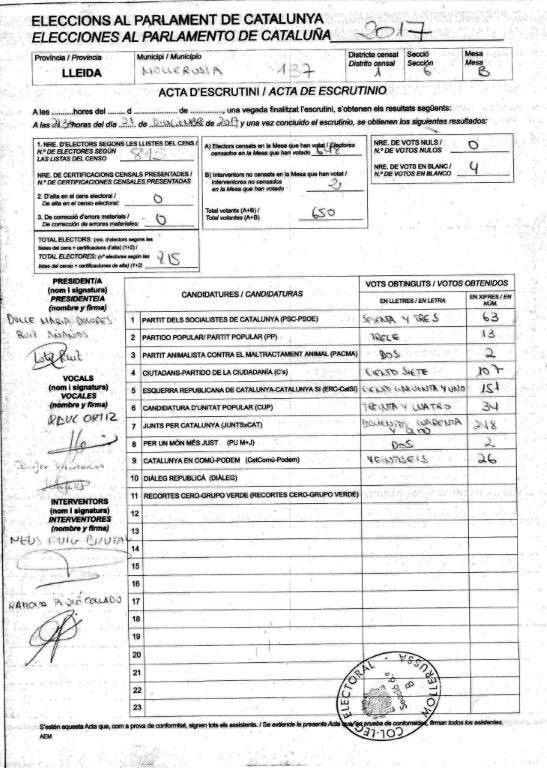 ELECCIONS AL PARLAMENT DE CATALUNYA
ELECCIONES AL PARLAMENTO DE CATALUÑA 2017
Província / Provincia
LLEIDA
Municipi / Municipio
MOLLERUSSA 137
Districte censal
Distrito censal
1
Secció
Sección
6
Mesa
Mesa
B
ACTA D'ESCRUTINI / ACTA DE ESCRUTINIO
A les ............hores del ....... d ................ de ............, una vegada finalitzat l'escrutini, s'obtenen els resultats següents:
A las horas del día 21 de DICIEMBRE de 2017 y una vez concluido el escrutinio, se obtienen los siguientes resultados:
1. NRE. D'ELECTORS SEGONS LES LLISTES DEL CENS /
N.º DE ELECTORES SEGÚN
LAS LISTAS DEL CENSO
815
NRE. DE CERTIFICACIONS CENSALS PRESENTADES /
N.º DE CERTIFICACIONES CENSALES PRESENTADAS
2. D'alta en el cens electoral /
De alta en el censo electoral:
0
3. De correcció d'errors materials /
De corrección de errores materiales:
0
TOTAL ELECTORS: (nre. d'electors segons les
llistes del cens + certificacions d'alta) (1+2) /
TOTAL ELECTORES: (nº electores según las
listas del censo + certificaciones de alta) (1+2)
815
A) Electors censats en la Mesa que han votat / Electores
censados en la Mesa que han votado
648
B) Interventors no censats en la Mesa que han votat /
Interventores no censados
en la Mesa que han votado
2
Total votants (A+B) /
Total votantes (A+B)
650
NRE. DE VOTS NULS /
N.º DE VOTOS NULOS
0
NRE. DE VOTS EN BLANC /
N.º DE VOTOS EN BLANCO
4
PRESIDENT/A
(nom i signatura)
PRESIDENTE/A
(nombre y firma)
DULCE MARIA DOLORES
RUIT
VOCALS
(nom i signatura)
VOCALES
(nombre y firma)
RAUL ORTIZ
INTERVENTORS
(nom i signatura)
INTERVENTORES
(nombre y firma)
NEUS PUIG
RAMONA COLLADO
CANDIDATURES / CANDIDATURAS
VOTS OBTINGUTS / VOTOS OBTENIDOS
EN LLETRES / EN LETRA
EN XIFRES / EN NÚM.
1 PARTIT DELS SOCIALISTES DE CATALUNYA (PSC-PSOE) SESENTA Y TRES 63
2 PARTIDO POPULAR/ PARTIT POPULAR (PP) TRECE 13
3 PARTIT ANIMALISTA CONTRA EL MALTRACTAMENT ANIMAL (PACMA) DOS 2
4 CIUTADANS-PARTIDO DE LA CIUDADANÍA (C's) CIENTO SIETE 107
5 ESQUERRA REPUBLICANA DE CATALUNYA-CATALUNYA SÍ (ERC-CatSí) CIENTO CINCUENTA Y UNO 151
6 CANDIDATURA D'UNITAT POPULAR (CUP) TREINTA Y CUATRO 34
7 JUNTS PER CATALUNYA (JUNTSxCAT) DOSCIENTOS CUARENTA Y OCHO 248
8 PER UN MÓN MÉS JUST (PU M+J) DOS 2
9 CATALUNYA EN COMÚ-PODEM (CatComú-Podem) VEINTISEIS 26
10 DIÀLEG REPUBLICÀ (DIÀLEG)
11 RECORTES CERO-GRUPO VERDE (RECORTES CERO-GRUPO VERDE)
12
13
14
15
16
17
18
19
20
21
22
23
COL·LEGI ELECTORAL - MOLLERUSSA
Secció 6ª
B
S'estén aquesta Acta que, com a prova de conformitat, signen tots els assistents. / Se extiende la presente Acta que, en prueba de conformidad, firman todos los asistentes.
AEM